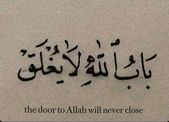 بَابُ ٱللَّٰهِ لَا يُغْلَقُ
the door to Allah will never close